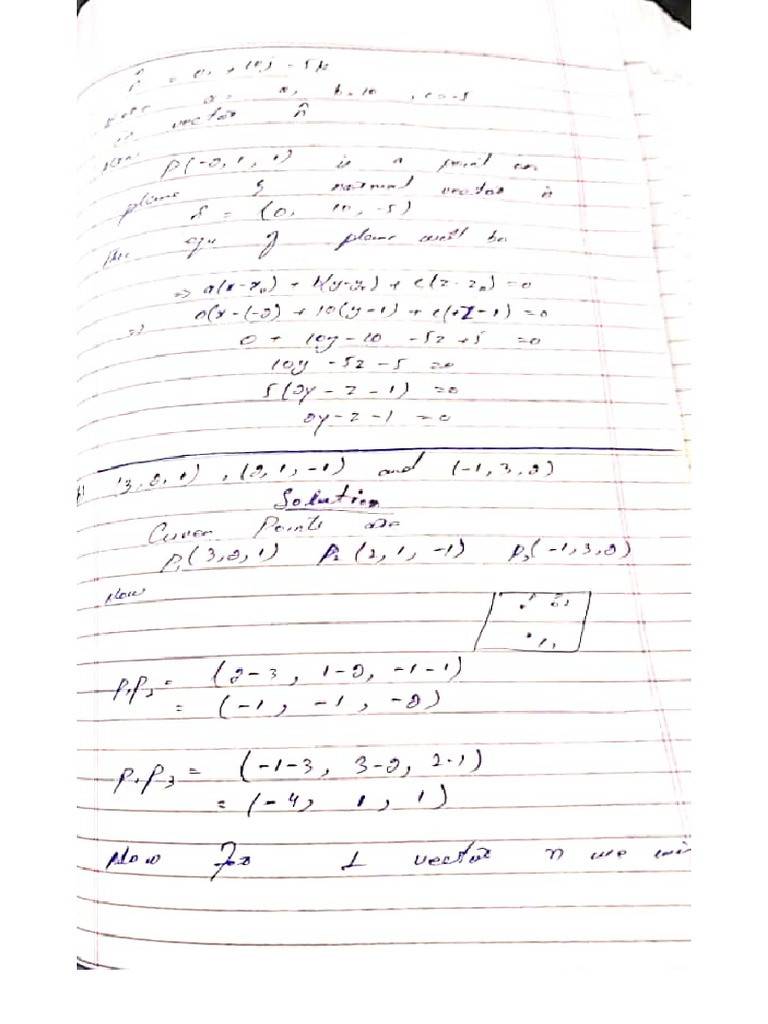 n̂ = 0i + 10j - 5k
a = 0, b = 10, c = -5
vector n̂
P(-2, 1, 1) is a point on
plane & normal vector is
n̂ = (0, 10, -5)
The equ of plane will be
⇒ a(x-x₀) + b(y-y₀) + c(z-z₀) = 0
⇒ 0(x-(-2) + 10(y-1) + c(+z-1) = 0
0 + 10y - 10 - 5z + 5 = 0
10y - 5z - 5 = 0
5(2y - z - 1) = 0
2y - z - 1 = 0
(3, 2, 1), (2, 1, -1) and (-1, 3, 2)
Solution
Given Points are
P₁(3, 2, 1) P₂(2, 1, -1) P₃(-1, 3, 2)
Now
P₁P₂ = (2-3, 1-2, -1-1)
= (-1, -1, -2)
P₁P₃ = (-1-3, 3-2, 2-1)
= (-4, 1, 1)
Now For ⊥ vector n we